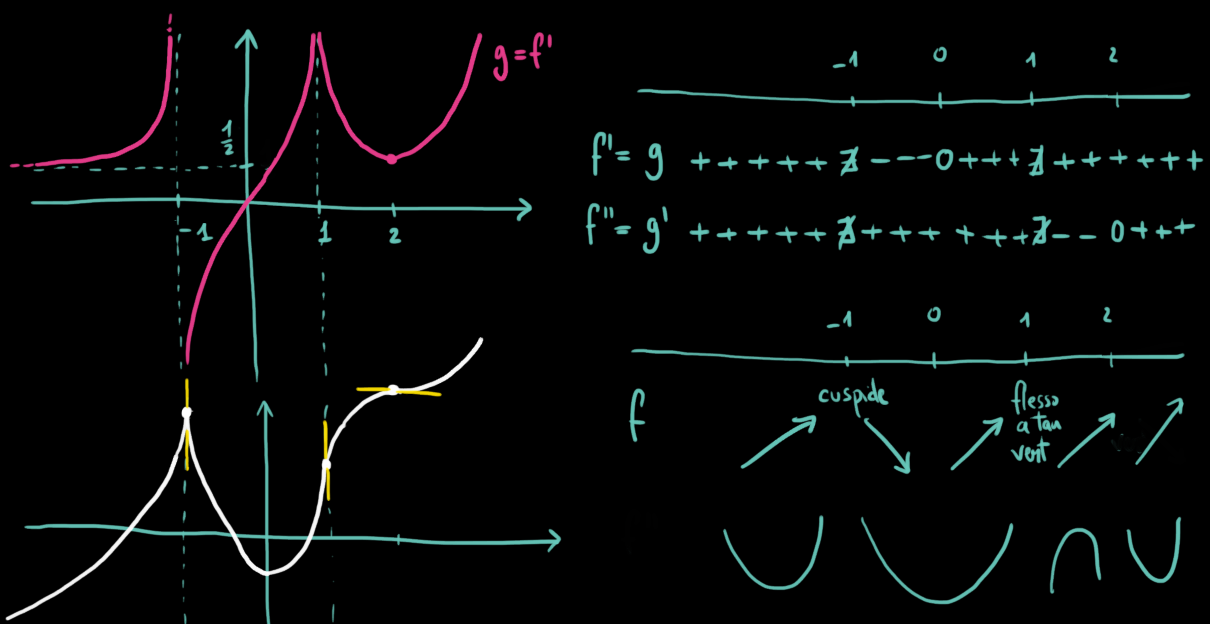 g=f'
1/2
-1 1 2
-1 0 1 2
f'= g +++++ ∄ ---0+++ ∄ +++++++
f''= g' +++++ ∄ ++++++ ∄ --0+++
-1 0 1 2
f cuspide flesso
a tan
vert